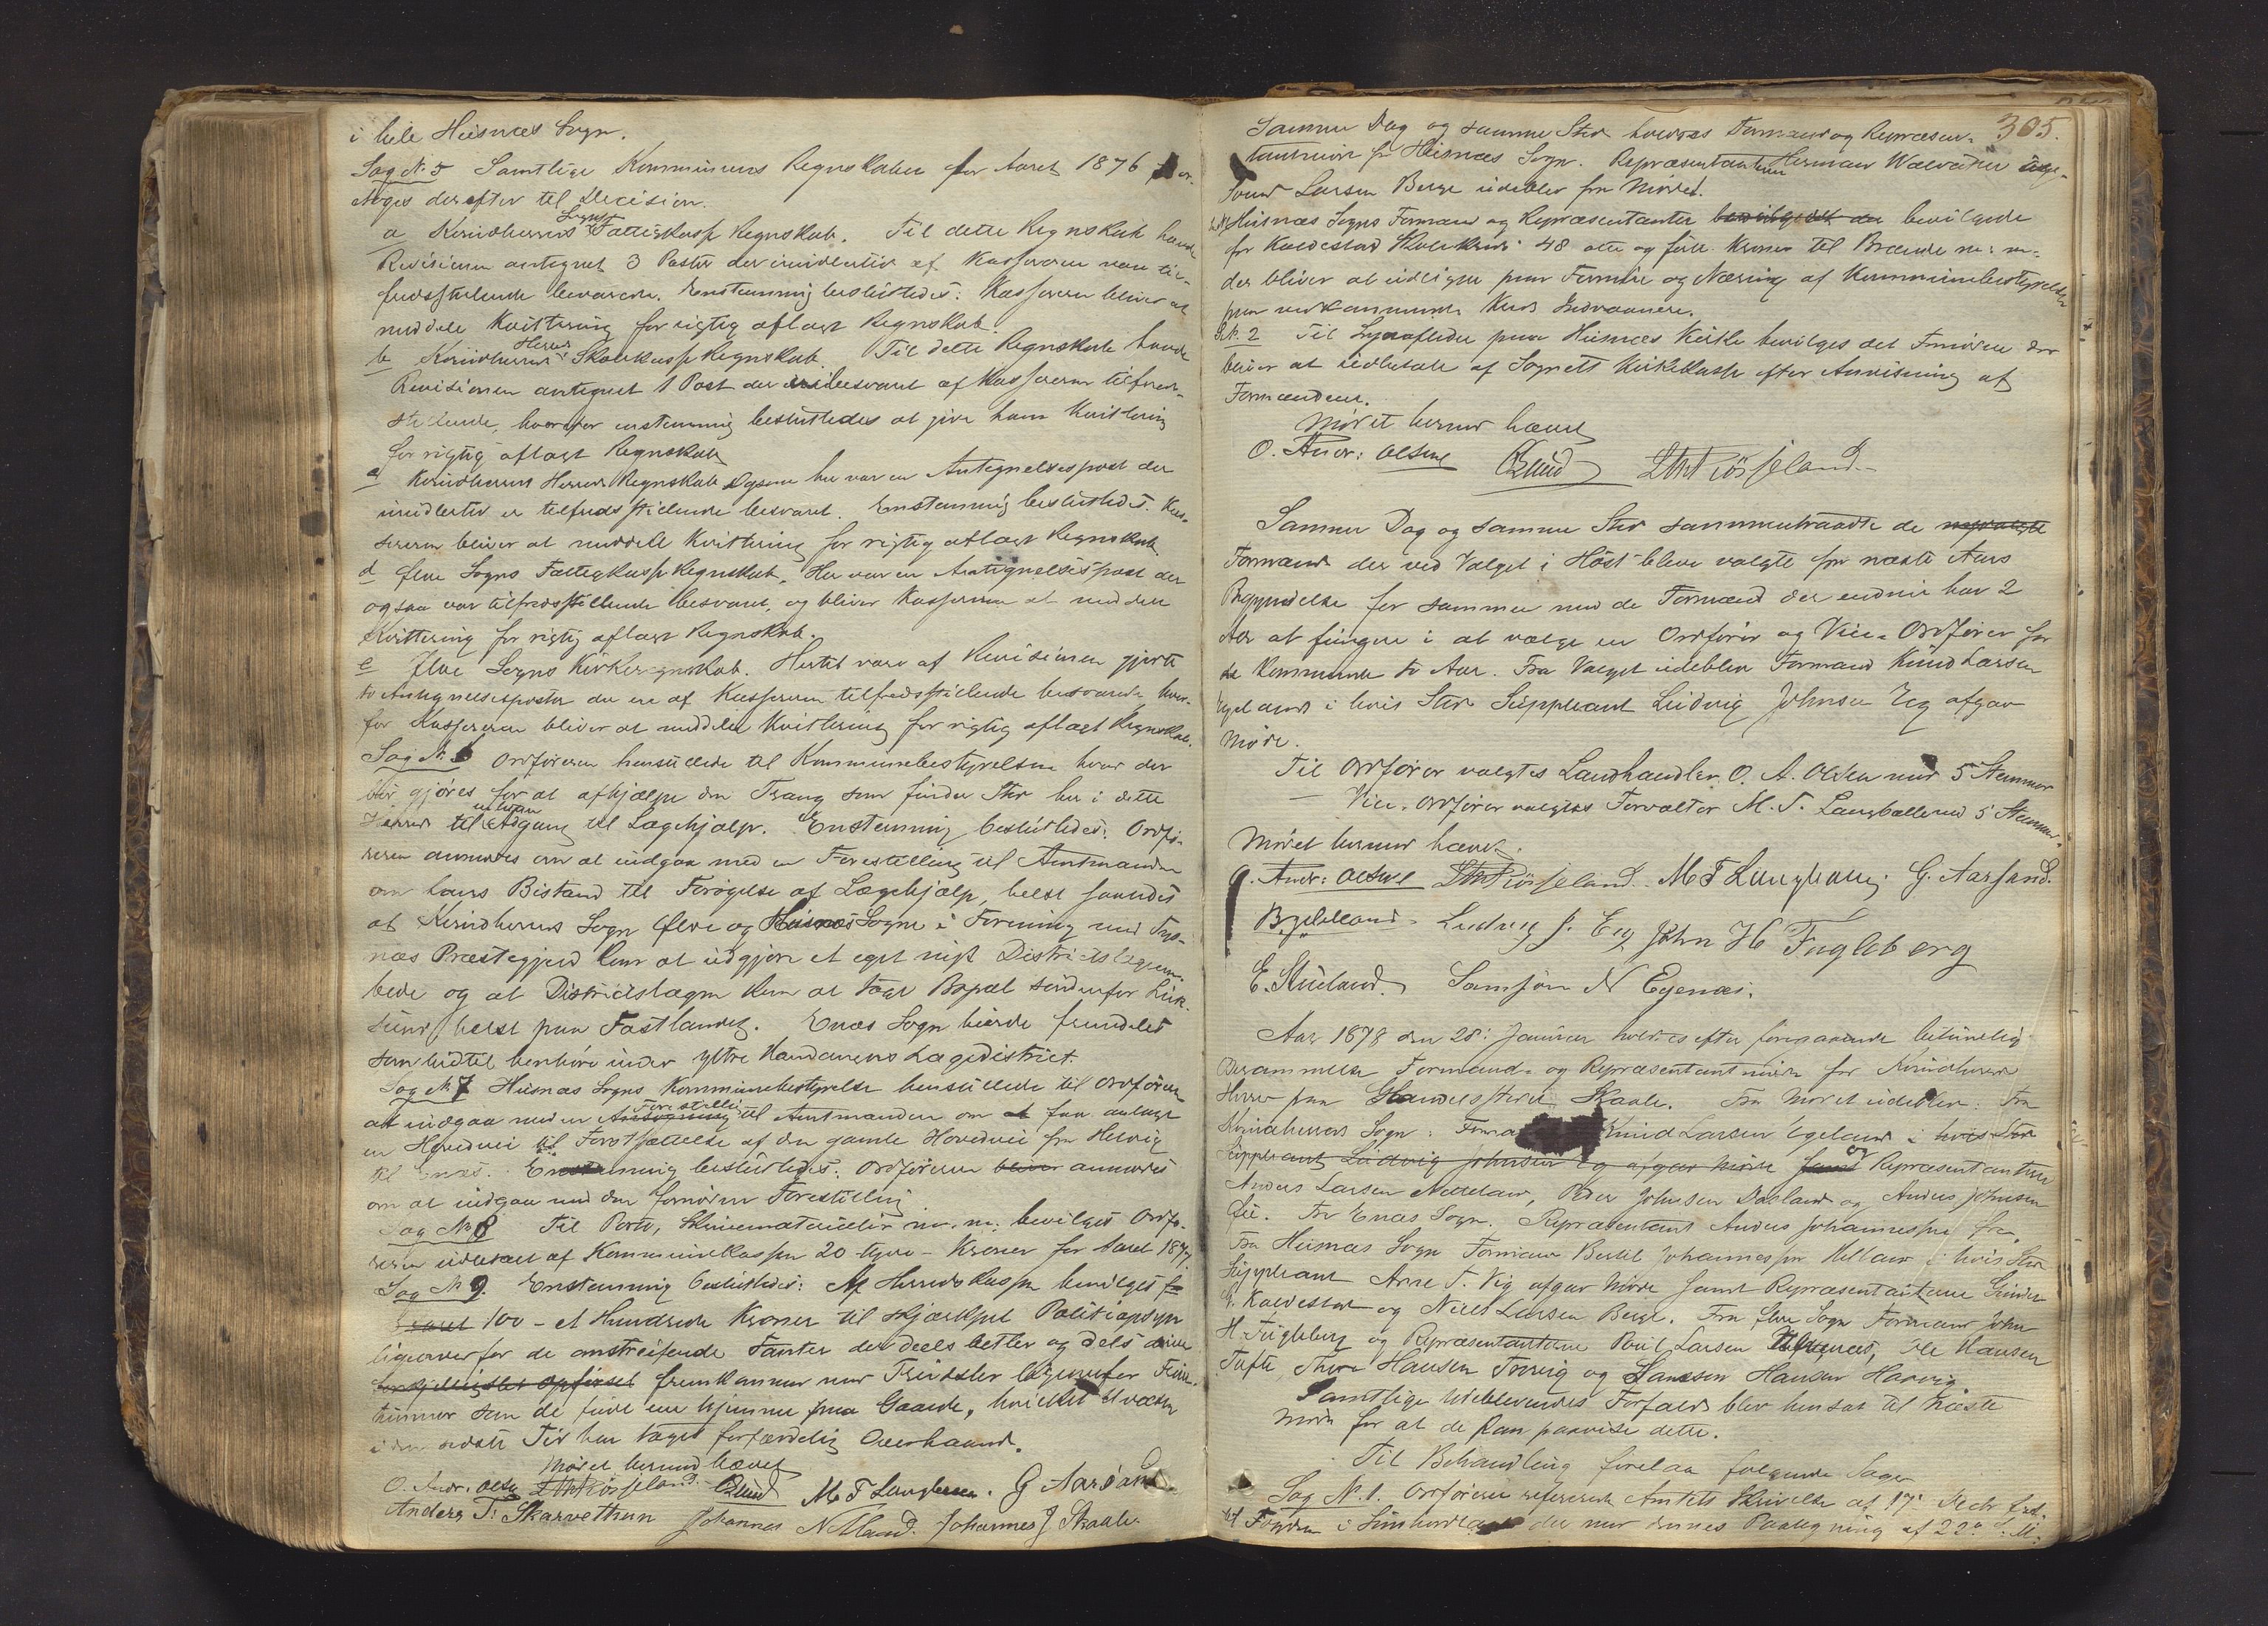 i hele Husnæs Sogn.
Sag N: 5 Samtlige Kommunens Regnskaber for Aaret 1876 for-
etoges derefter til Decision.
a Kvindherreds Sogns Fattigkasse Regnskab. Til dette Regnskab havde
Revisionen antegnet 3 Poster der imidlertid af Kassereren vare til-
fredsstillende besvarede. Enstemmig besluttedes: Kassereren bliver at
meddele Kvittering for rigtig aflagt Regnskab.
b Kvindherreds Herreds Skolekasse Regnskab. Til dette Regnskab havde
Revisionen antegnet 1 Post der var besvaret af Kassereren tilfreds-
stillende, hvorefor enstemmig besluttedes at give ham Kvittering
for rigtig aflagt Regnskab
c Kvindherreds Herreds Regnskab Ogsaa her var en Antegnelsespost der
imidlertid er tilfredsstillende besvaret. Enstemmig besluttedes: Kas-
sereren bliver at meddele Kvittering for rigtig aflagt Regnskab
d Ølve Sogns Fattigkasse Regnskab. Her var en Antegnelsespost der
ogsaa var tilfredsstillende besvaret, og bliver Kassereren at meddele
Kvittering for rigtig aflagt Regnskab.
e Ølve Sogns Kirkeregnskab. Hertil vare af Revisionen gjorte
to Antegnelsesposter der ere af Kassereren tilfredsstillende besvarede hvor-
for Kassereren bliver at meddeles Kvittering for rigtig aflagt Regnskab.
Sag N: 6 Ordføreren henstillede til Kommunebestyrelsen hvad der
bør gjøres for at afhjælpe den Trang som finder Sted her i dette
Herred til Adgang til Lægehjælp. Enstemmig besluttedes: Ordfø-
reren anmodes om at indgaa med en Forestilling til Amtmanden
om hans Bistand til Forøgelse af Lægehjælp, helst saaledes
at Kvindherreds Sogn Ølve og Husnæs Sogne i Forening med Tys-
næs Præstegjeld kom at udgjøre et eget nyt Districtslægeem-
bede og at Districtslægen kom at tage Bopæl søndenfor Luk-
sund helst paa Fastlandet. Enæs Sogn burde fremdeles
som hidtil henhøre under ytre Hardangers Lægedistrict.
Sag N: 7 Husnæs Sogns Kommunebestyrelse henstillede til Ordføreren
at indgaa med en Forestilling til Amtmanden om at faa anlagt
en Hovedvei til Fortsættelse af den gamle Hovedvei fra Helvig
til Enæs. Enstemmig besluttedes: Ordføreren bliver anmodes
om at indgaa med den fornødne Forestilling
Sag No 8 Til Porto, Skrivematerialier m. m. bevilges Ordfø-
reren udbetalt af Kommunekassen 20 tyve - Kroner for Aaret 1877.
Sag No 9. Enstemmig besluttedes: Af Herredskassen bevilges for
Aaret 100 - et Hundrede Kroner til skjærpet Politiopsyn
ligeoverfor de omstreifende Fanter der deels betler og dels
fremkommer med Trudsler ligeoverfor Fruen-
timmer som de finde ene hjemme paa Gaarde, hvilket Uvæsen
i den sidste Tid har taget forfærdelig Overhaand.
Mødet hermed hævet
O. Andr. Olsen M F Langballe. G Aarsand
Anders T: Skarvethun Johannes N Uland. Johannes J Skaale.
305.
Samme Dag og samme Sted holdtes Formand og Repræsen-
tantmøde for Husnæs Sogn. Repræsentanterne Herman Wæraas
Larsen Berge udeblev fra Mødet.
Husnæs Sogns Formænd og Repræsentanter bevilgede
for Kaldestad Skolekreds 48 otte og førti Kroner til Brænde m: m:
der bliver at udligne paa Formue og Næring af Kommunebestyrelsen
paa vedkommende Kreds Indvaanere.
S.N. 2 Til Lynafleder paa Husnæs Kirke bevilges det Fornødne der
bliver at udbetale af Sognets Kirkekasse efter Anvisning af
Formændene.
Mødet hermed hævet
O. Andr: Olsen
Samme Dag og samme Sted sammentraadte de nyvalgte
Formænd der ved Valget i Høst bleve valgte fra næste Aars
Begyndelse for sammen med de Formænd der endnu har 2
Aar at fungere i at vælge en Ordfører og Vice-Ordfører for
de kommende to Aar. Fra Valget udeblev Formand Knud Larsen
Egeland i hvis Sted Suppleant Ludvig Johnsen Eeg afgav
Møde.
Til Ordfører valgtes Landhandler O. A. Olsen med 5 Stemmer
— Vice-Ordfører valgtes Forvalter M. F. Langballe med 5 Stemmer.
Mødet hermed hævet.
O. Andr: Olsen M F Langballe G. Aarsand.
B. Jelland. Ludvig J. Eeg John H Fugleberg
E. Skeeland. Samson N Egenæs.
Aar 1878 den 28: Januar holdtes efter foregaaende betimelig
Berammelse Formand- og Repræsentantmøde for Kvindherred
Herred paa Skaale. Fra Mødet udeblev: Fra
Kvindherreds Sogn: Knud Larsen Egeland i hvis Sted
Suppleant Ludvig Johnsen Eg afgav Møde samt og Repræsentanterne
Anders Larsen Nettland, Peder Johnsen Dæsland og Anders Johnsen
Øie. Fra Enæs Sogn. Repræsentant Anders Johannesen
Fra Husnæs Sogn Formand Bertil Johannesen Uelland i hvis Sted
Suppleant Arne T. Vig afgav Møde samt Repræsentanterne
G. Kaldestad og Niels Larsen Berge. Fra Ølve Sogn Formand John
H. Fugleberg og Repræsentanterne Poul Larsen, Ole Hansen
Tufte, Thore Hansen Trovig og Samson Hansen Haavig
Samtlige Udeblevendes Forfald blev hensat til næste
Møde for at de kan paavise dette.
Til Behandling forelaa følgende Sager
Sag N: 1. Ordføreren refererede Amtets Skrivelse af 17: Decbr
Fogden i Søndhordland der med dennes Paategning af 22: d. M: